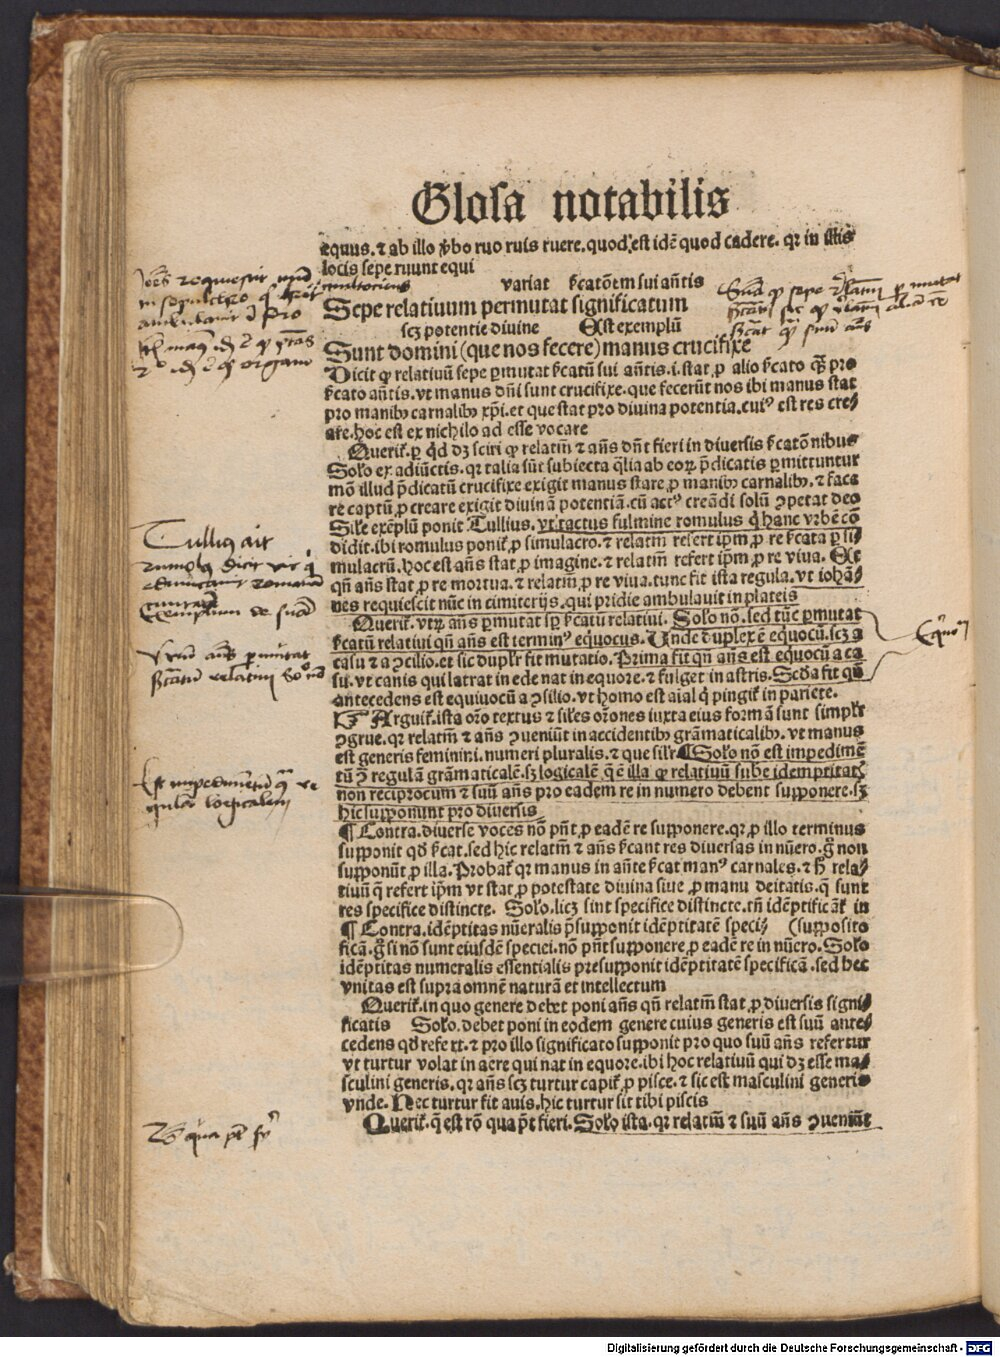 Glosa notabilis
equus. ⁊ ab illo ꝟbo ruo ruis ruere. quod est idē quod cadere. qꝛ in istis
locis sepe ruunt equi
multociens variat ẜcatōem sui añtis
Sepe relatiuum permutat significatum
scꝫ potentie diuine Est exemplū
Sunt domini (que nos fecere) manus crucifixe
Dicit ꝙ relatiuū sepe ꝑmutat ẜcatū sui añtis. i. stat ꝓ alio ẜcato
ẜcato añtis. vt manus dñi sunt crucifixe. que fecerūt nos ibi manus stat
pro manibꝫ carnalibꝫ xp̄i. et que stat pro diuina potentia. cuiꝰ est res cre⸗
are. hoc est ex nichilo ad esse vocare
Querit̃. ꝑ qd̄ dꝫ sciri ꝙ relatiṁ ⁊ añs dñt fieri in diuersis ẜcatōnibus
Solo ex adiūctis. qꝛ talia sūt subiecta q̄lia ab eoꝝ p̄dicatis ꝑmittuntur
mō illud p̄dicatū crucifixe exigit manus stare ꝓ manibꝫ carnalibꝫ. ⁊ face
re captū ꝓ creare exigit diuinā potentiā. cū actꝰ creādi solū ꝯpetat deo
Sile exēplū ponit Tullius. vt tactus fulmine romulus q̇ hanc vrbē cō
didit. ibi romulus ponit̃ ꝓ simulacro. ⁊ relatiṁ refert ip̄m ꝓ re ẜcata ꝑ si⸗
mulacrū. hoc est añs stat ꝓ imagine. ⁊ relatiṁ refert ip̄m ꝓ re viua. Et
qñ añs stat ꝓ re mortua. ⁊ relatiṁ ꝓ re viua. tunc fit ista regula. vt iohā⸗
nes requiescit nūc in cimiterijs. qui pridie ambulauit in plateis
Querit̃. vtꝝ añs ꝑmutat sꝑ ẜcatū relatiui. Solo nō. sed tūc ꝑmutat
ẜcatū relatiui qñ añs est terminꝰ equocus. Unde duplex ē equocū. scꝫ a
casu ⁊ a ꝯcilio. et sic dupl̓r fit mutatio. Prima fit qñ añs est equocū a ca
su. vt canis qui latrat in ede nat in equore. ⁊ fulget in astris. Scd̄a fit qñ
antecedens est equiuocū a ꝯsilio. vt homo est aial q̄ pingit̃ in pariete.
☞ Arguit̃. ista oro textus ⁊ sil̓es orones iuxta eius formā sunt simpl̓r
ꝯgrue. qꝛ relatiṁ ⁊ añs ꝯueniūt in accidentibꝫ grāmaticalibꝫ. vt manus
est generis feminini. numeri pluralis. ⁊ que sil̓r ¶ Solo nō est impedimē
tū ꝯͣ regulā grāmaticalē. sꝫ logicalē. q̄ ē illa ꝙ relatiuū sube idemptitatꝭ
non reciprocum ⁊ suū añs pro eadem re in numero debent supponere. sꝫ
hic supponunt pro diuersis
¶ Contra. diuerse voces nō pñt ꝓ eadē re supponere. qꝛ ꝓ illo terminus
supponit qd̄ ẜcat. sed hic relatiṁ ⁊ añs ẜcant res diuersas in nūero. g̊ non
supponūt ꝓ illa. Probat̃ qꝛ manus in añte ẜcat manꝰ carnales. ⁊ ħ rela⸗
tiuū q̄ refert ip̄m vt stat ꝓ potestate diuina siue ꝓ manu deitatis. q̄ sunt
res specifice distincte. Solo. licꝫ sint specifice distincte. tñ idēptificāt̃ in
¶ Contra. idēptitas nūeralis p̄supponit idēptitatē speci⸗ (supposito
ficā. g̊ si nō sunt eiusdē speciei. nō pñt supponere ꝓ eadē re in nūero. Solo
idēptitas numeralis essentialis presupponit idēptitatē specificā. sed hec
vnitas est supra omnē naturā et intellectum
Querit̃. in quo genere debet poni añs qñ relatiṁ stat ꝓ diuersis signi⸗
ficatis Solo. debet poni in eodem genere cuius generis est suū ante⸗
cedens qd̄ refert. ⁊ pro illo significato supponit pro quo suū añs refertur
vt turtur volat in aere qui nat in equore. ibi hoc relatiuū qui dꝫ esse ma⸗
sculini generis. qꝛ añs scꝫ turtur capit̃ ꝓ pisce. ⁊ sic est masculini generis
vnde. Nec turtur fit auis. hic turtur sit tibi piscis
Querit̃. q̄ est rō qua p̄t fieri. Solo ista. qꝛ relatiṁ ⁊ suū añs ꝯueniūt
Tullius ait
exemplum de
Est impedimentū
regulam loycalem
Digitalisierung gefördert durch die Deutsche Forschungsgemeinschaft - DFG